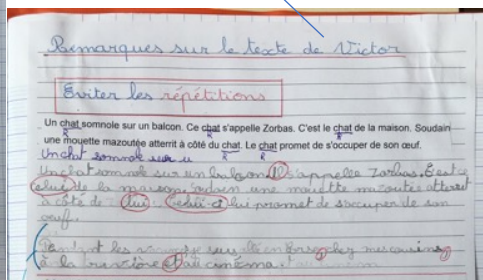 Remarques sur le texte de Victor
Éviter les répétitions
Un chat somnole sur un balcon. Ce chat s'appelle Zorbas. C'est le chat de la maison. Soudain
une mouette mazoutée atterrit à côté du chat. Le chat promet de s'occuper de son œuf.
R R R
R R
Un chat somnole sur u
Un chat somnole sur un balcon. Il s'appelle Zorbas. C'est
celui de la maison. une mouette mazoutée atterrit
à côté de lui. Celui-ci lui promet de s'occuper de son
œuf.
Pendant les sur chez mes cousins,
à la au cinéma.